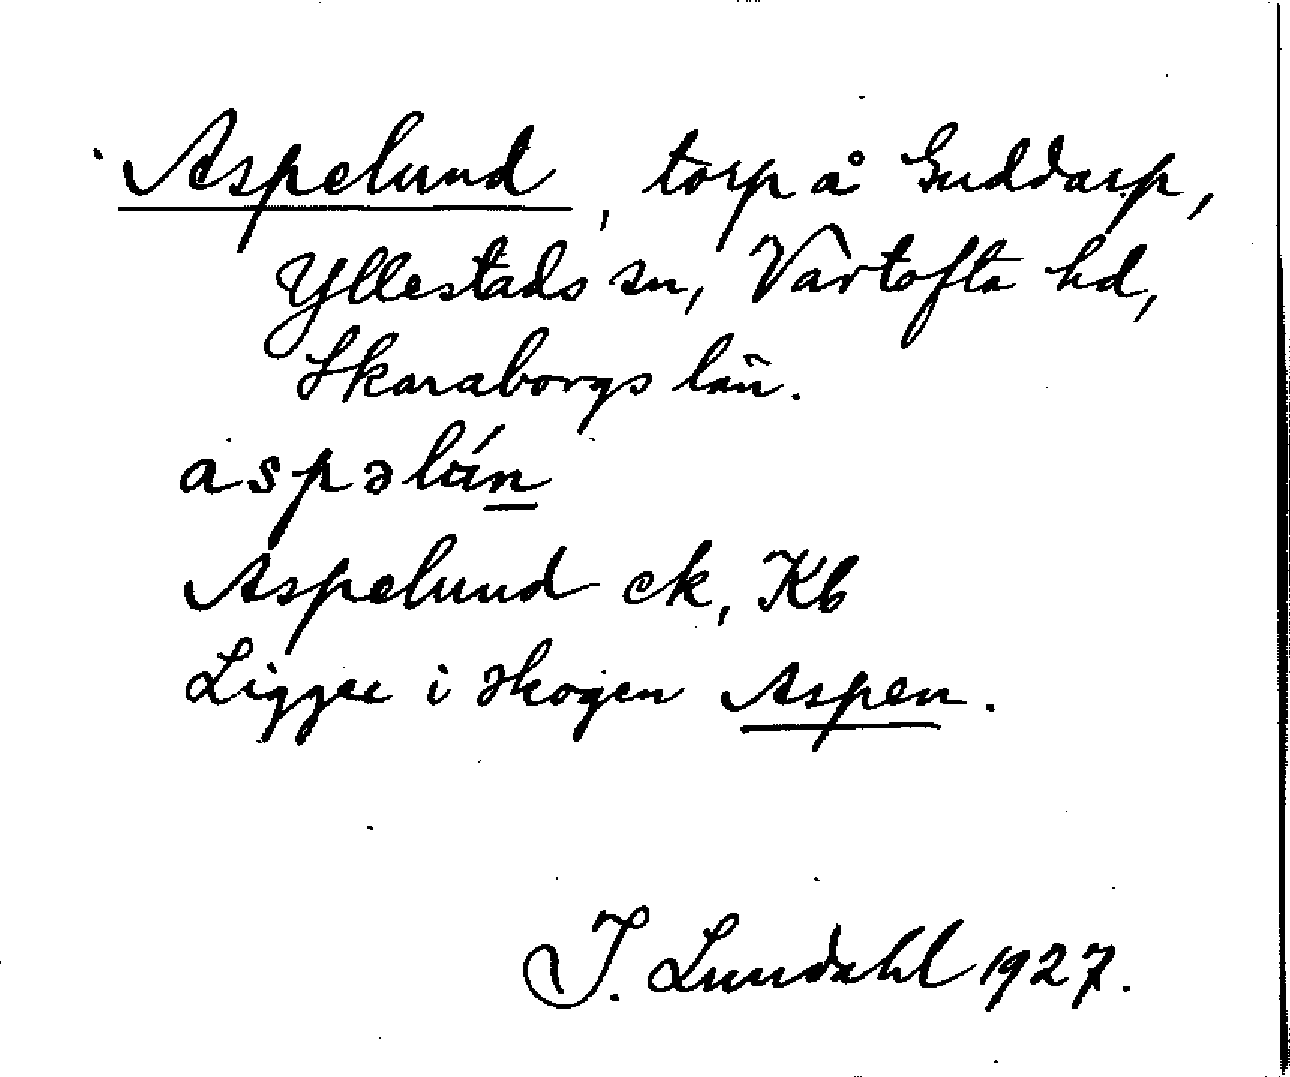 Aspelund, torp å Guddarp,
Yllestads sn, Vartofta hd,
Skaraborgs län.
aspəlún
Aspelund ek, Kb
Ligger i skogen Aspen.
I. Lundahl 1927.